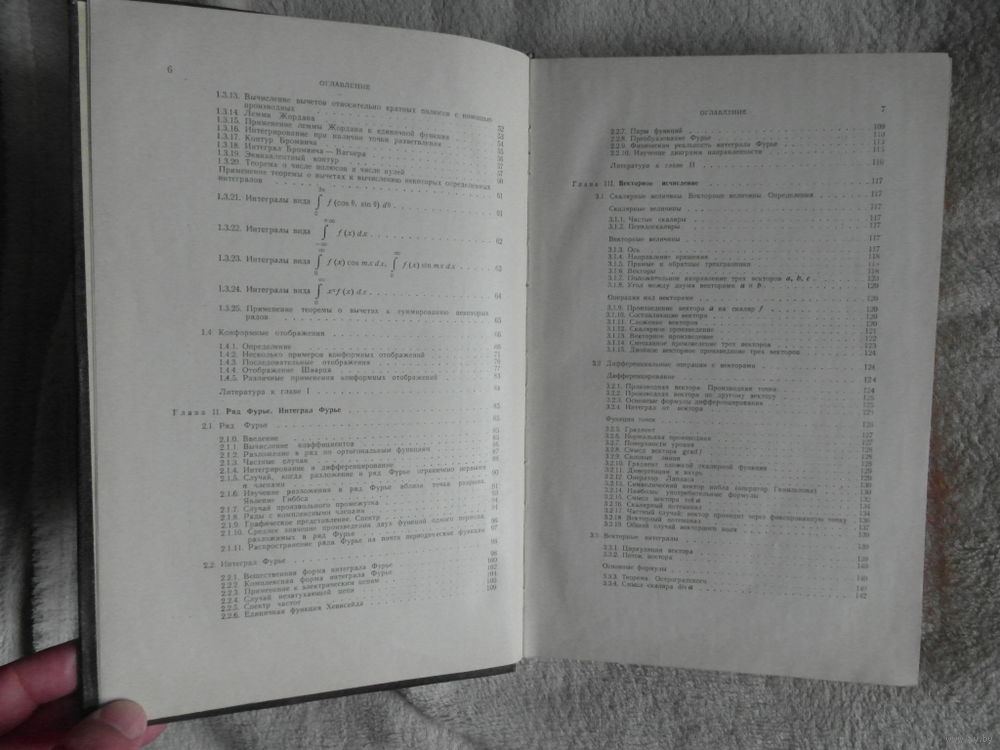 6
ОГЛАВЛЕНИЕ
1.3.13. Вычисление вычетов относительно кратных полюсов с помощью
производных 52
1.3.14. Лемма Жордана 53
1.3.15. Применение леммы Жордана к единичной функции 54
1.3.16. Интегрирование при наличии точки разветвления 55
1.3.17. Контур Бромвича 56
1.3.18. Интеграл Бромвича — Вагнера 57
1.3.19. Эквивалентный контур 57
1.3.20. Теорема о числе полюсов и числе нулей 60
Применение теоремы о вычетах к вычислению некоторых определенных
интегралов 61
1.3.21. Интегралы вида ∫ f (cos θ, sin θ) dθ 61
1.3.22. Интегралы вида ∫ f (x) dx 62
1.3.23. Интегралы вида ∫ f (x) cos mx dx, ∫ f (x) sin mx dx 63
1.3.24. Интегралы вида ∫ xᵃf (x) dx 64
1.3.25. Применение теоремы о вычетах к суммированию некоторых
рядов 65
1.4 Конформные отображения 66
1.4.1. Определение 66
1.4.2. Несколько примеров конформных отображений 71
1.4.3. Последовательные отображения 76
1.4.4. Отображение Шварца 77
1.4.5. Различные применения конформных отображений 83
Литература к главе I 84
Глава II. Ряд Фурье. Интеграл Фурье 85
2.1. Ряд Фурье 85
2.1.0. Введение 85
2.1.1. Вычисление коэффициентов 85
2.1.2. Разложение в ряд по ортогональным функциям 86
2.1.3. Частные случаи 87
2.1.4. Интегрирование и дифференцирование 88
2.1.5. Случай, когда разложение в ряд Фурье ограничено первыми
n членами 90
2.1.6. Изучение разложения в ряд Фурье вблизи точки разрыва.
Явление Гиббса 91
2.1.7. Случай произвольного промежутка 93
2.1.8. Ряды с комплексными членами 94
2.1.9. Графическое представление. Спектр 94
2.1.10. Среднее значение произведения двух функций одного периода,
разложимых в ряд Фурье 96
2.1.11. Распространение ряда Фурье на почти периодические функции 97
2.2. Интеграл Фурье 98
2.2.1. Вещественная форма интеграла Фурье 98
2.2.2 Комплексная форма интеграла Фурье 100
2.2.3 Применение к электрическим цепям 102
2.2.4. Случай незатухающей цепи 104
2.2.5. Спектр частот 108
2.2.6. Единичная функция Хевисайда 109
ОГЛАВЛЕНИЕ
7
2.2.7. Пары функций 109
2.2.8. Преобразование Фурье 110
2.2.9. Физическая реальность интеграла Фурье 113
2.2.10. Изучение диаграмм направленности 115
Литература к главе II 116
Глава III. Векторное исчисление 117
3.1 Скалярные величины. Векторные величины. Определения 117
Скалярные величины 117
3.1.1. Чистые скаляры 117
3.1.2. Псевдоскаляры 117
Векторные величины 117
3.1.3. Ось 117
3.1.4. Направление вращения 118
3.1.5. Прямые и обратные трехгранники 118
3.1.6. Векторы 118
3.1.7. Положительное направление трех векторов a, b, c 123
3.1.8. Угол между двумя векторами a и b 120
Операции над векторами 120
3.1.9. Произведение вектора a на скаляр f 120
3.1.10. Составляющие вектора 120
3.1.11. Сложение векторов 120
3.1.12. Скалярное произведение 121
3.1.13. Векторное произведение 122
3.1.14. Смешанное произведение трех векторов 123
3.1.15. Двойное векторное произведение трех векторов 124
3.2 Дифференциальные операции с векторами 124
Дифференцирование 124
3.2.1. Производная вектора. Производная точки 124
3.2.2. Производная вектора по другому вектору 125
3.2.3. Основные формулы дифференцирования 125
3.2.4. Интеграл от вектора 125
Функции точки
3.2.5. Градиент 127
3.2.6. Нормальная производная 127
3.2.7. Поверхности уровня 128
3.2.8. Смысл вектора grad f 128
3.2.9. Силовые линии 128
3.2.10. Градиент сложной скалярной функции 129
3.2.11. Дивергенция и вихрь 129
3.2.12. Оператор Лапласа 130
3.2.13. Символический вектор набла (оператор Гамильтона) 130
3.2.14. Наиболее употребительные формулы 132
3.2.15. Смысл вектора rot a 134
3.2.16. Скалярный потенциал
3.2.17. Частный случай: вектор проходит через фиксированную точку 136
3.2.18. Векторный потенциал 137
3.2.19. Общий случай векторного поля 139
3.3 Векторные интегралы 139
3.3.1. Циркуляция вектора 139
3.3.2. Поток вектора 140
Основные формулы 140
3.3.3. Теорема Остроградского 142
3.3.4. Смысл скаляра div a 142